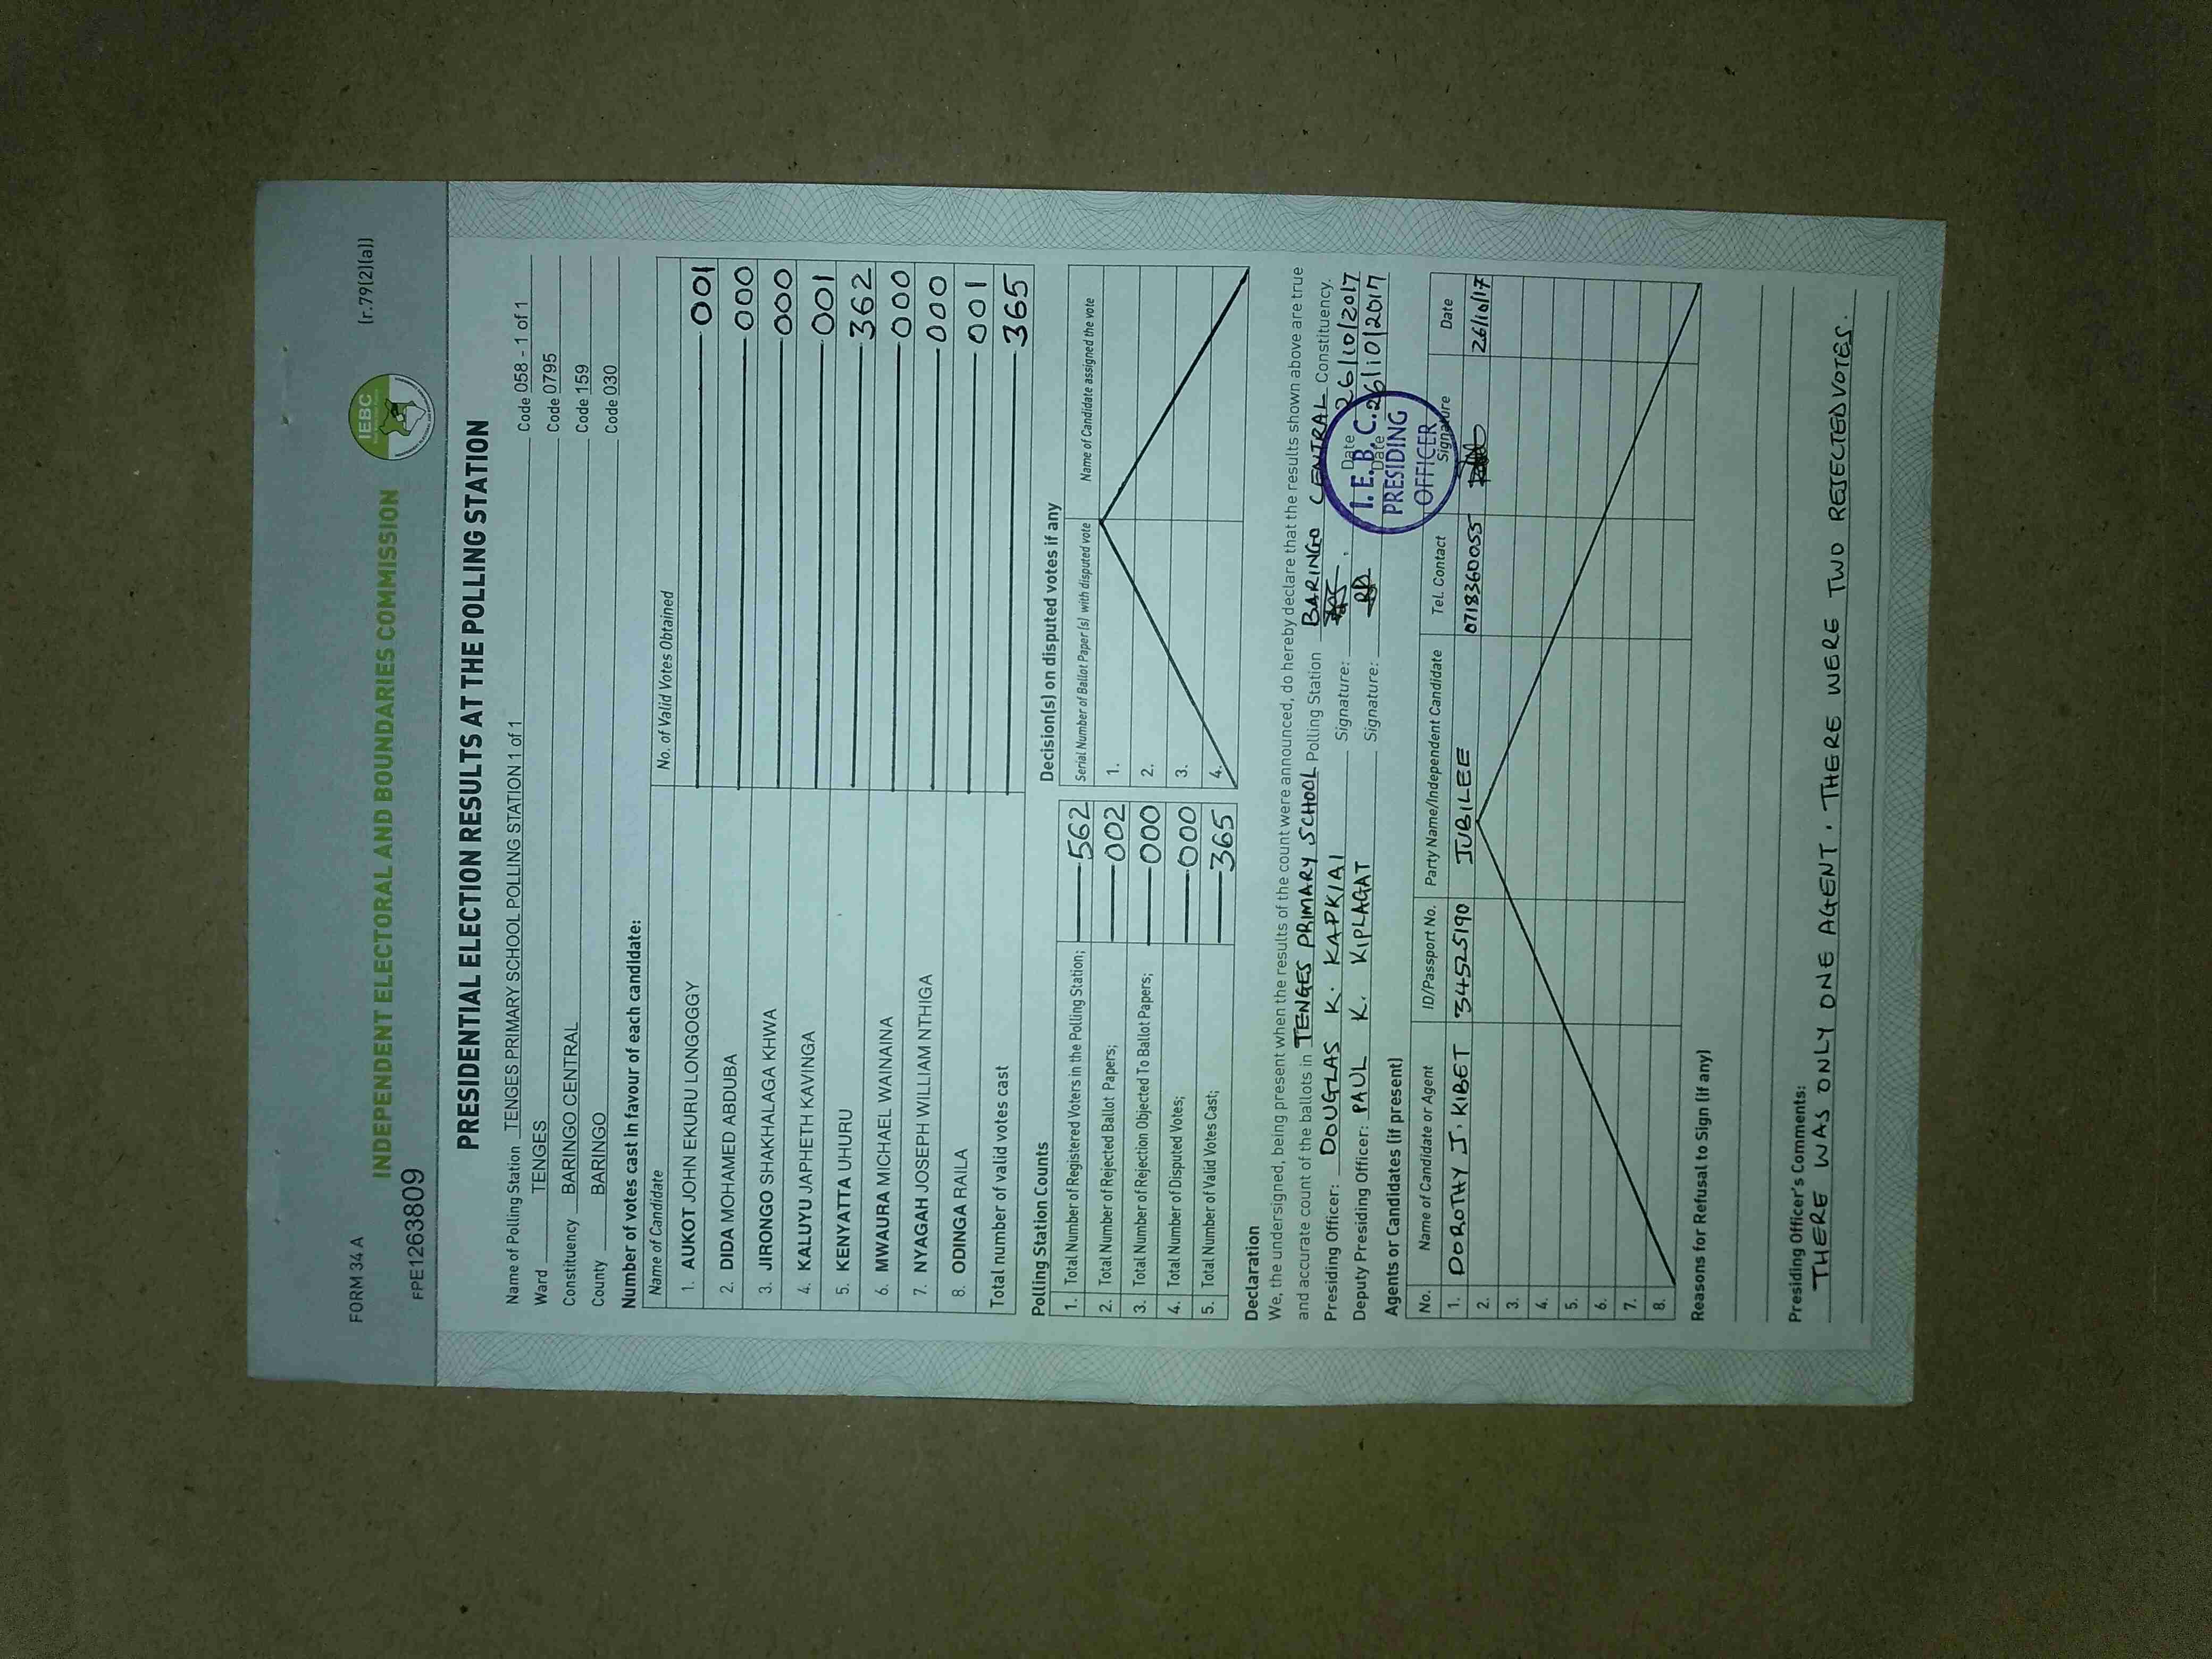 FORM 34 A
(r.79(2)(a))
IEBC
INDEPENDENT ELECTORAL AND BOUNDARIES COMMISSION
FPE1263809
PRESIDENTIAL ELECTION RESULTS AT THE POLLING STATION
Name of Polling Station TENGES PRIMARY SCHOOL POLLING STATION 1 of 1 Code 058 - 1 of 1
Ward TENGES Code 0795
Constituency BARINGO CENTRAL Code 159
County BARINGO Code 030
Number of votes cast in favour of each candidate:
Name of Candidate No. of Valid Votes Obtained
1. AUKOT JOHN EKURU LONGOGGY 001
2. DIDA MOHAMED ABDUBA 000
3. JIRONGO SHAKHALAGA KHWA 000
4. KALUYU JAPHETH KAVINGA 001
5. KENYATTA UHURU 362
6. MWAURA MICHAEL WAINAINA 000
7. NYAGAH JOSEPH WILLIAM NTHIGA 000
8. ODINGA RAILA 001
Total number of valid votes cast 365
Polling Station Counts
1. Total Number of Registered Voters in the Polling Station; 562
2. Total Number of Rejected Ballot Papers; 002
3. Total Number of Rejection Objected To Ballot Papers; 000
4. Total Number of Disputed Votes; 000
5. Total Number of Valid Votes Cast; 365
Decision(s) on disputed votes if any
Serial Number of Ballot Paper (s) with disputed vote Name of Candidate assigned the vote
1.
2.
3.
4.
Declaration
We, the undersigned, being present when the results of the count were announced, do hereby declare that the results shown above are true
and accurate count of the ballots in TENGES PRIMARY SCHOOL Polling Station BARINGO CENTRAL Constituency.
Presiding Officer: DOUGLAS K. KAPKIAI Signature: Date 26/10/2017
Deputy Presiding Officer: PAUL K. KIPLAGAT Signature: Date 26/10/2017
I.E.B.C.
PRESIDING
OFFICER
Agents or Candidates (if present)
No. Name of Candidate or Agent ID/Passport No. Party Name/Independent Candidate Tel. Contact Signature Date
1. DOROTHY J. KIBET 34525190 JUBILEE 0718360055 26/10/17
2.
3.
4.
5.
6.
7.
8.
Reasons for Refusal to Sign (if any)
Presiding Officer's Comments:
THERE WAS ONLY ONE AGENT. THERE WERE TWO REJECTED VOTES.